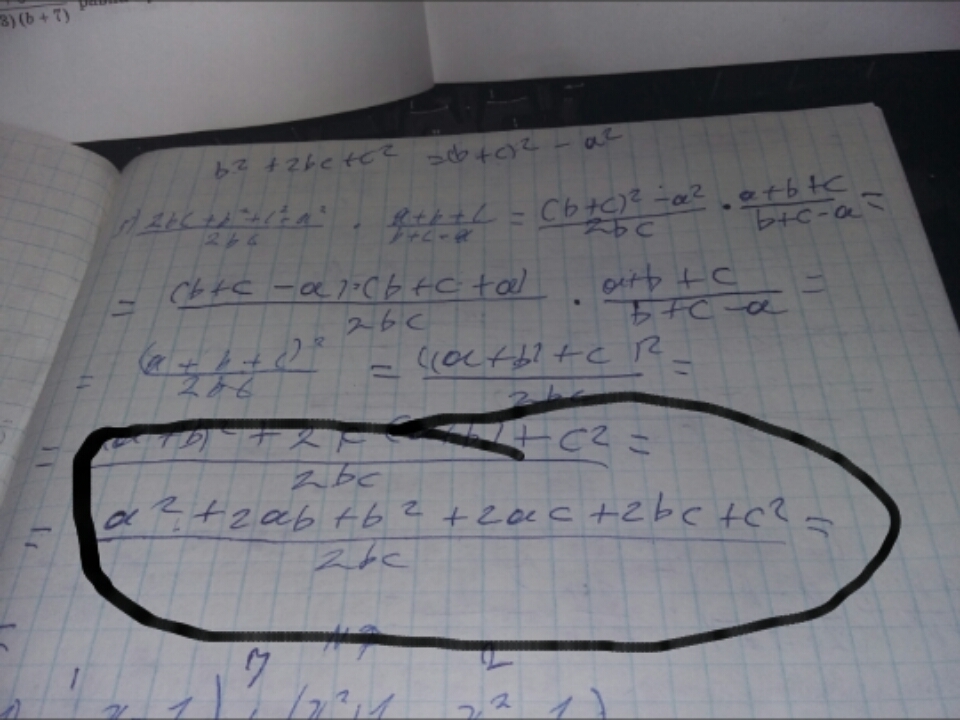 8)(b+7)
b² + 2bc + c² = (b+c)² - a²
(2bc + b² + c² - a²)/(2bc) · (a+b+c)/(b+c-a) = ((b+c)² - a²)/(2bc) · (a+b+c)/(b+c-a) =
= ((b+c-a)·(b+c+a))/(2bc) · (a+b+c)/(b+c-a) =
= (a+b+c)²/(2bc) = ((a+b)+c)²/(2bc) =
= ((a+b)² + 2c(a+b) + c²)/(2bc) =
= (a² + 2ab + b² + 2ac + 2bc + c²)/(2bc) =